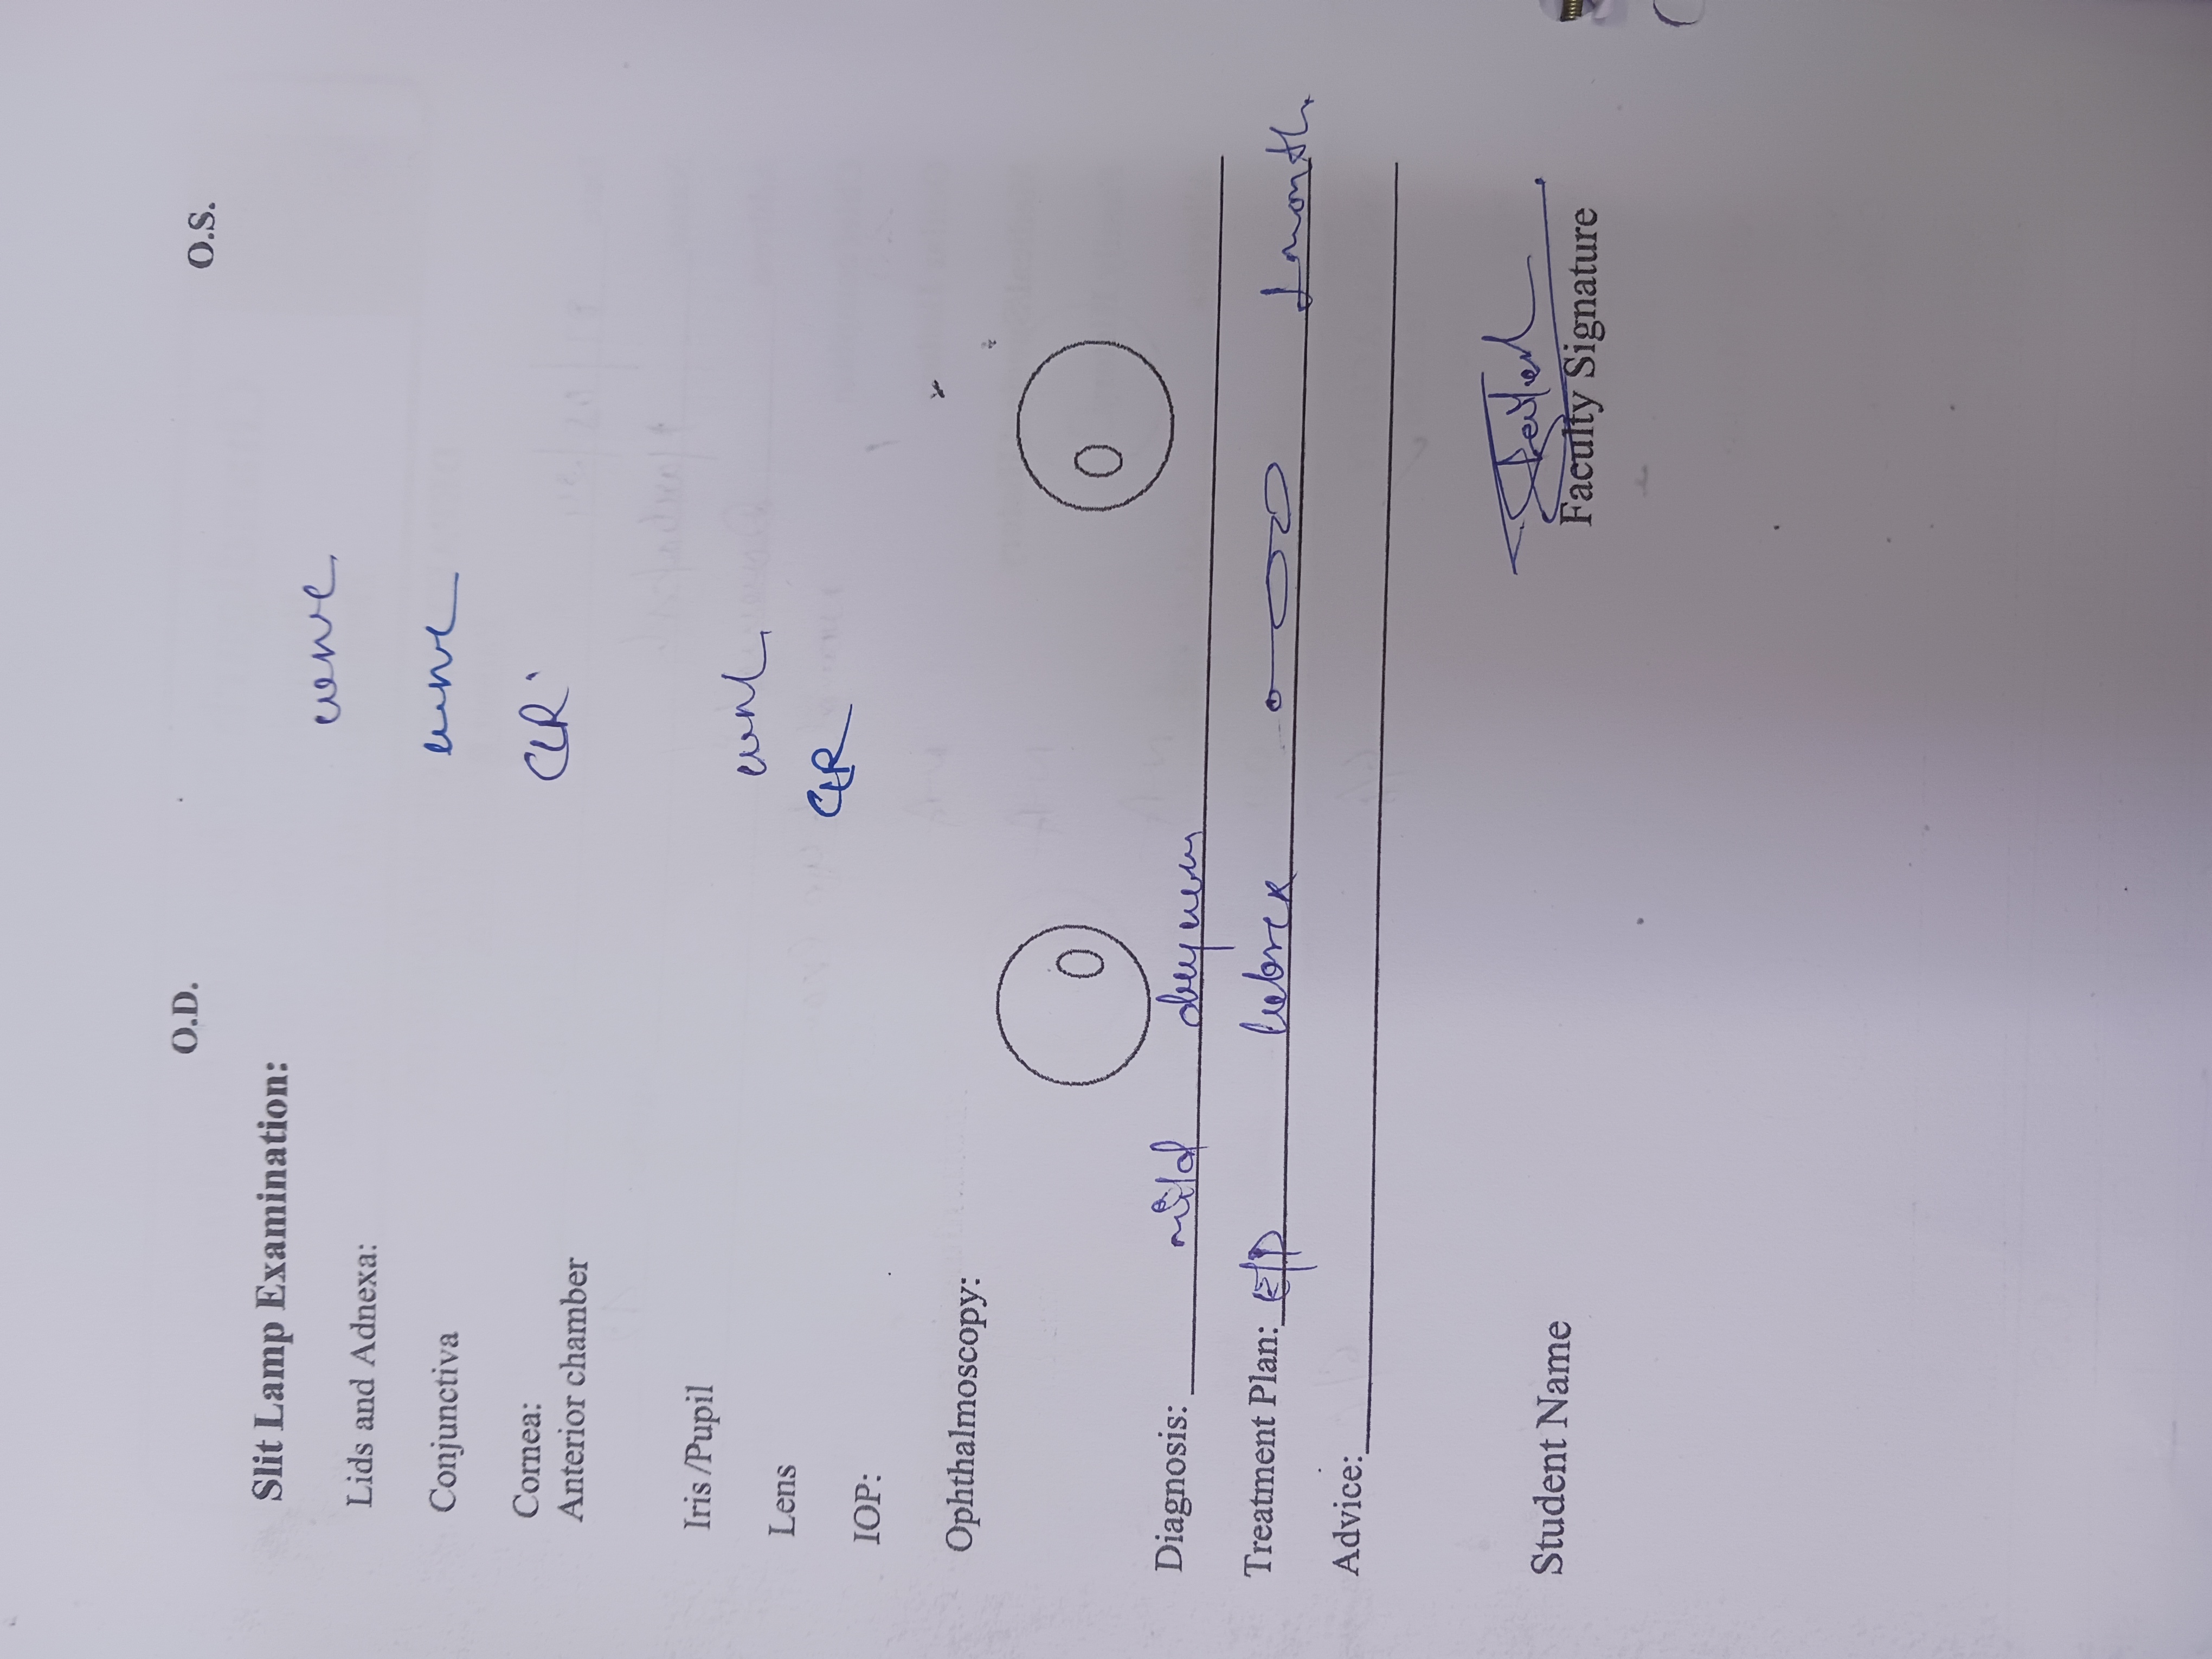 O.D. O.S.
Slit Lamp Examination:
Lids and Adnexa:
Conjunctiva
Cornea: CLR
Anterior chamber
Iris /Pupil
wnl
Lens
CLR
IOP:
Ophthalmoscopy:
Diagnosis: mild dryness
Treatment Plan: E/D 1 month
Advice:
Student Name Faculty Signature